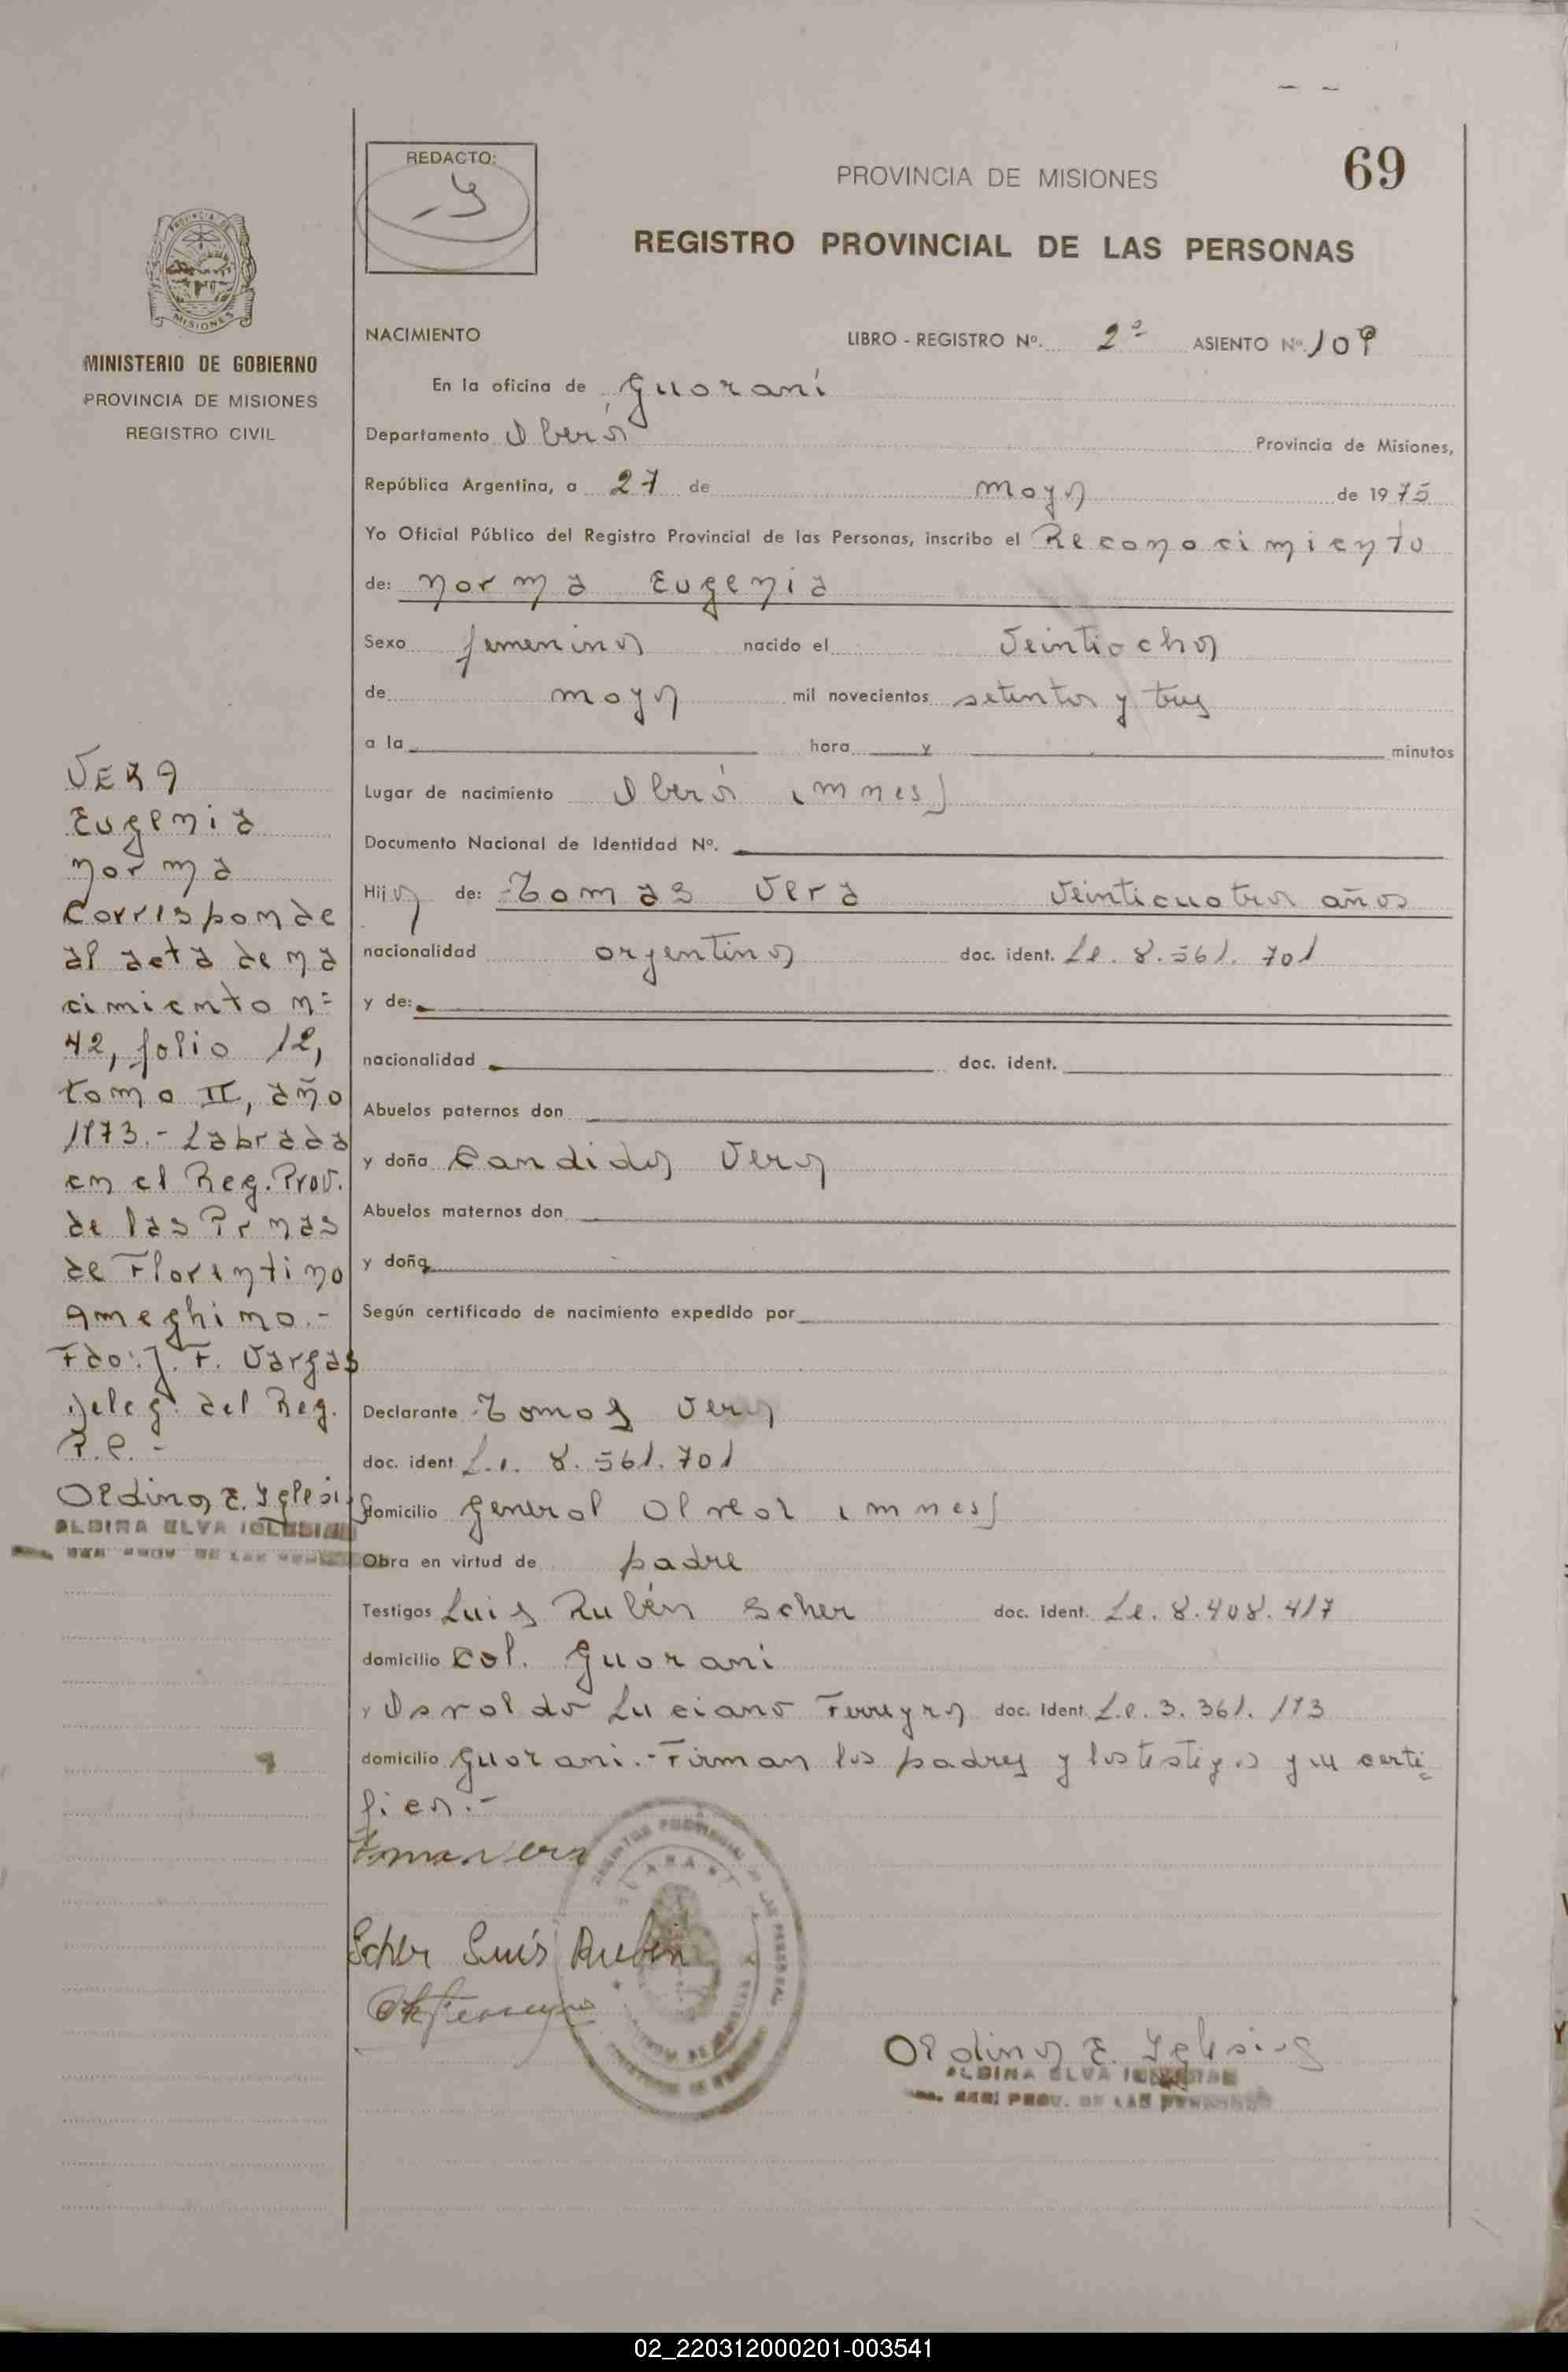 69
REDACTO:
PROVINCIA DE MISIONES
REGISTRO PROVINCIAL DE LAS PERSONAS
MISIONES
MINISTERIO DE GOBIERNO
PROVINCIA DE MISIONES
REGISTRO CIVIL
VERA
Eugenia
Norma
Corresponde
al acta de na
cimiento nº
42, folio 12,
tomo II, año
1973.- Labrada
en el Reg. Prov.
de las Prnas
de Florentino
Ameghino.-
Fdo: J. F. Vargas
Deleg. del Reg.
P.P. -
Albina E. Iglesias
ALBINA ELVA IGLESIAS
NACIMIENTO LIBRO - REGISTRO Nº. 2º ASIENTO Nº. 109
En la oficina de Guaraní
Departamento Oberá Provincia de Misiones,
República Argentina, a 27 de mayo de 1975
Yo Oficial Público del Registro Provincial de las Personas, inscribo el Reconocimiento
de: Norma Eugenia
Sexo femenino nacido el veintiocho
de mayo mil novecientos setenta y tres
a la hora y minutos
Lugar de nacimiento Oberá (mnes)
Documento Nacional de Identidad Nº.
Hija de: Tomas Vera veinticuatro años
nacionalidad argentino doc. ident. L.e. 8.561.701
y de:
nacionalidad doc. ident.
Abuelos paternos don
y doña Candida Vera
Abuelos maternos don
y doña
Según certificado de nacimiento expedido por
Declarante Tomas Vera
doc. ident. L.e. 8.561.701
domicilio General Alvear (mnes)
Obra en virtud de padre
Testigos Luis Rubén Scher doc. ident. L.e. 8.408.417
domicilio Col. Guaraní
y Osvaldo Luciano Ferreyra doc. ident. L.e. 3.361.113
domicilio Guaraní.- Firman los padres y los testigos que certi=
fico.-
Tomas Vera
Scher Luis Ruben
Albina E. Iglesias
ALBINA ELVA IGLESIAS
02_220312000201-003541